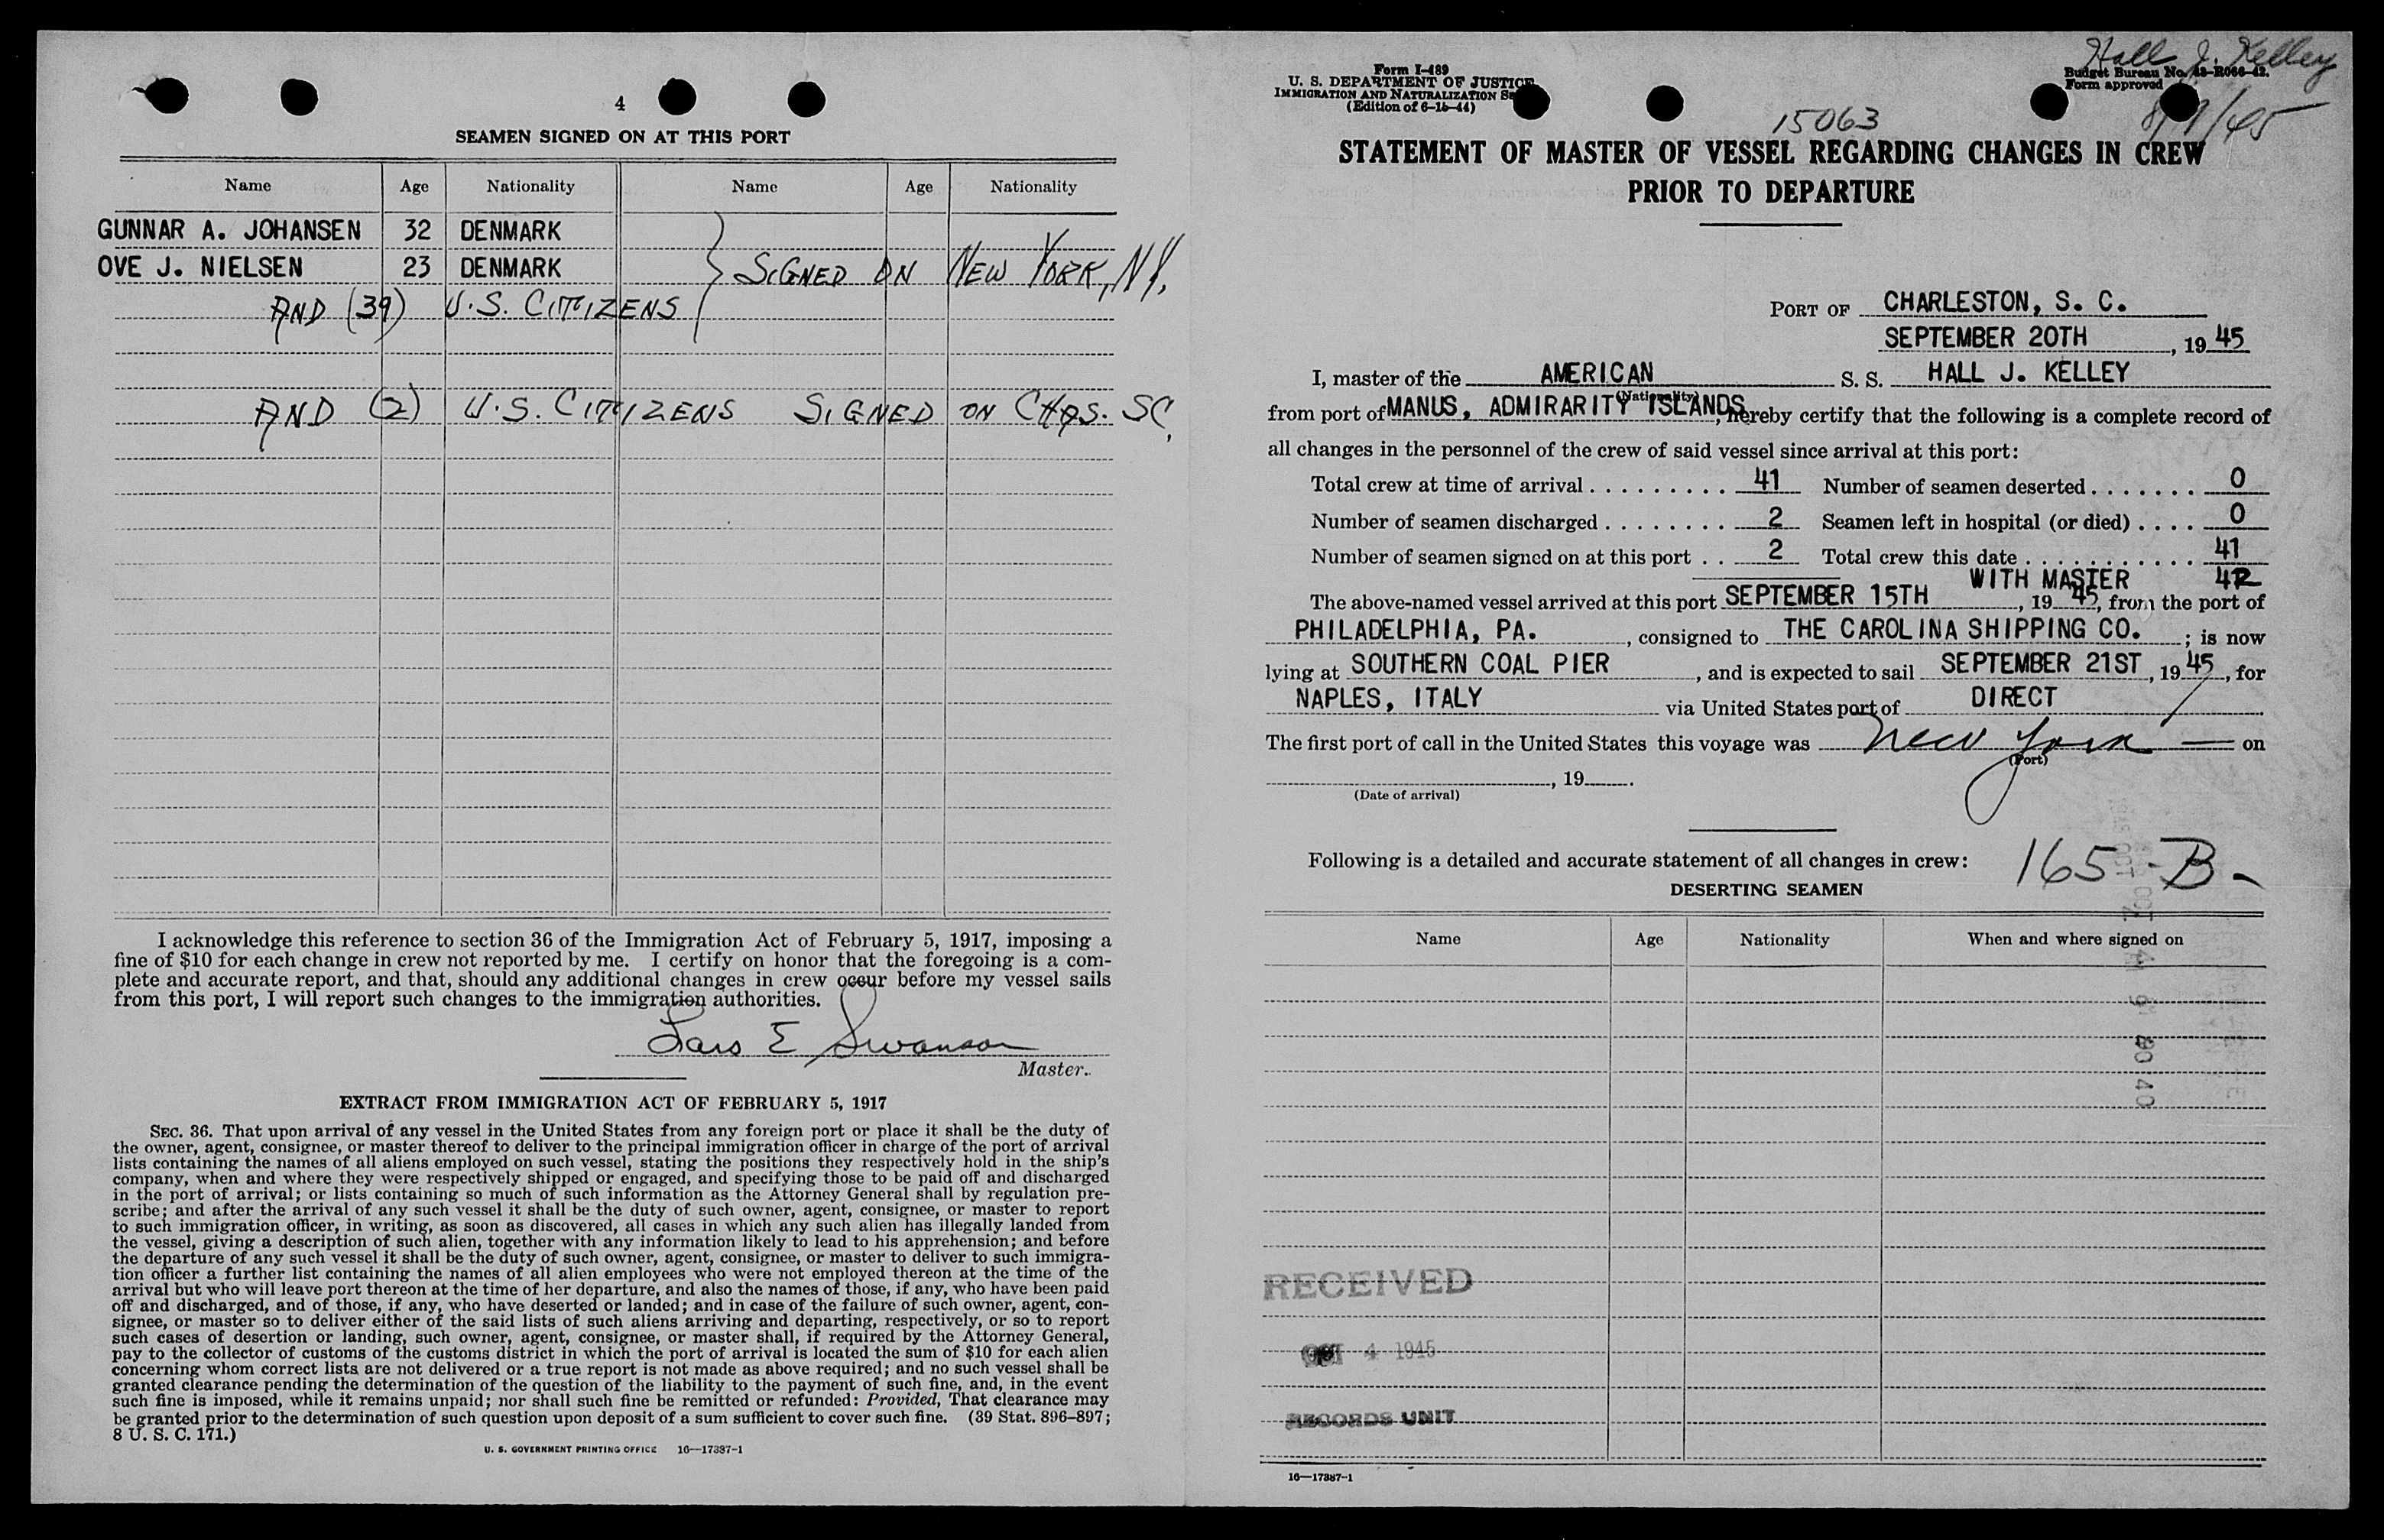 4
SEAMEN SIGNED ON AT THIS PORT
Name Age Nationality Name Age Nationality
GUNNAR A. JOHANSEN 32 DENMARK
OVE J. NIELSEN 23 DENMARK SIGNED ON NEW YORK, NY.
AND (39) U.S. CITIZENS
AND (2) U.S. CITIZENS SIGNED ON CHAS. SC,
I acknowledge this reference to section 36 of the Immigration Act of February 5, 1917, imposing a
fine of $10 for each change in crew not reported by me. I certify on honor that the foregoing is a com-
plete and accurate report, and that, should any additional changes in crew occur before my vessel sails
from this port, I will report such changes to the immigration authorities.
Lars E Swanson
Master.
EXTRACT FROM IMMIGRATION ACT OF FEBRUARY 5, 1917
SEC. 36. That upon arrival of any vessel in the United States from any foreign port or place it shall be the duty of
the owner, agent, consignee, or master thereof to deliver to the principal immigration officer in charge of the port of arrival
lists containing the names of all aliens employed on such vessel, stating the positions they respectively hold in the ship's
company, when and where they were respectively shipped or engaged, and specifying those to be paid off and discharged
in the port of arrival; or lists containing so much of such information as the Attorney General shall by regulation pre-
scribe; and after the arrival of any such vessel it shall be the duty of such owner, agent, consignee, or master to report
to such immigration officer, in writing, as soon as discovered, all cases in which any such alien has illegally landed from
the vessel, giving a description of such alien, together with any information likely to lead to his apprehension; and before
the departure of any such vessel it shall be the duty of such owner, agent, consignee, or master to deliver to such immigra-
tion officer a further list containing the names of all alien employees who were not employed thereon at the time of the
arrival but who will leave port thereon at the time of her departure, and also the names of those, if any, who have been paid
off and discharged, and of those, if any, who have deserted or landed; and in case of the failure of such owner, agent, con-
signee, or master so to deliver either of the said lists of such aliens arriving and departing, respectively, or so to report
such cases of desertion or landing, such owner, agent, consignee, or master shall, if required by the Attorney General,
pay to the collector of customs of the customs district in which the port of arrival is located the sum of $10 for each alien
concerning whom correct lists are not delivered or a true report is not made as above required; and no such vessel shall be
granted clearance pending the determination of the question of the liability to the payment of such fine, and, in the event
such fine is imposed, while it remains unpaid; nor shall such fine be remitted or refunded: Provided, That clearance may
be granted prior to the determination of such question upon deposit of a sum sufficient to cover such fine. (39 Stat. 896-897;
8 U. S. C. 171.)
U. S. GOVERNMENT PRINTING OFFICE 16—17387-1
Hall J. Kelley
Form I-489
U. S. DEPARTMENT OF JUSTICE
IMMIGRATION AND NATURALIZATION
(Edition of 6-15-44)
Budget Bureau No. 43-R066-42.
Form approved
15063
STATEMENT OF MASTER OF VESSEL REGARDING CHANGES IN CREW
PRIOR TO DEPARTURE
PORT OF CHARLESTON, S. C.
SEPTEMBER 20TH, 1945
I, master of the AMERICAN S. S. HALL J. KELLEY
(Nationality)
from port of MANUS, ADMIRARITY ISLANDS, hereby certify that the following is a complete record of
all changes in the personnel of the crew of said vessel since arrival at this port:
Total crew at time of arrival . . . . . . . . . 41 Number of seamen deserted . . . . . . . 0
Number of seamen discharged . . . . . . . . 2 Seamen left in hospital (or died) . . . . 0
Number of seamen signed on at this port . . 2 Total crew this date . . . . . . . . . . . 41
WITH MASTER 42
The above-named vessel arrived at this port SEPTEMBER 15TH, 1945, from the port of
PHILADELPHIA, PA., consigned to THE CAROLINA SHIPPING CO.; is now
lying at SOUTHERN COAL PIER, and is expected to sail SEPTEMBER 21ST, 1945, for
NAPLES, ITALY via United States port of DIRECT
The first port of call in the United States this voyage was New York — on
(Port)
, 19 .
(Date of arrival)
Following is a detailed and accurate statement of all changes in crew: 165-B-
DESERTING SEAMEN
Name Age Nationality When and where signed on
RECEIVED
OCT 4 1945
RECORDS UNIT
16—17387-1